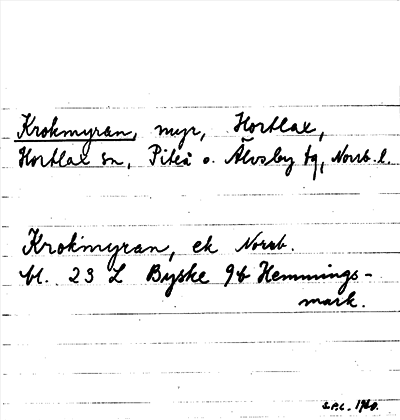 Krokmyran, myr, Hortlax,
Hortlax sn, Piteå o. Älvsby tg, Norrb. l.
Krokmyran, ek Norrb.
bl. 23 L Byske 9b Hemmings-
mark.
1960.